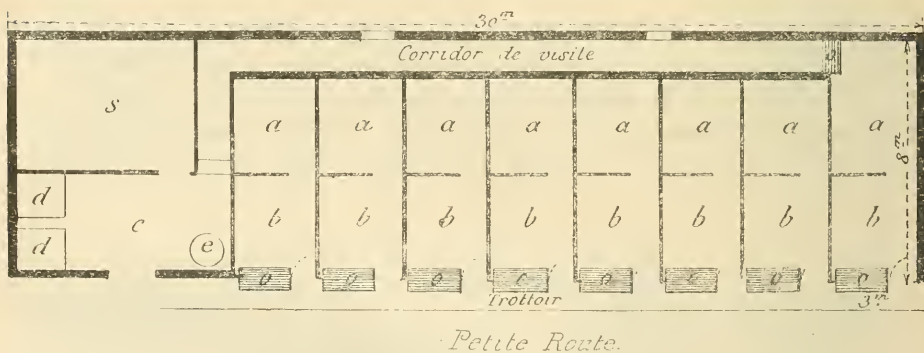 30m
Corridor de visite
o
s a a a a a a a a
8m
d c b b b b b b b b
d e
o o o o o o o o
Trottoir 3m
Petite Route.